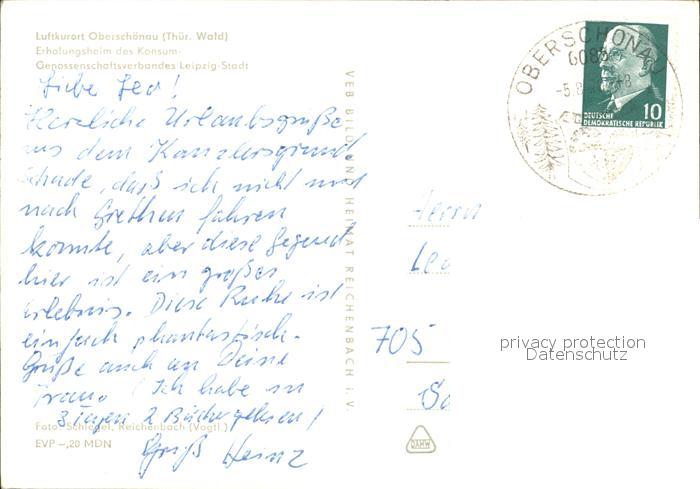 Luftkurort Oberschönau (Thür. Wald)
Erholungsheim des Konsum-
Genossenschaftsverbandes Leipzig-Stadt
Liebe Leo!
Herzliche Urlaubsgrüße
aus dem Kanzlersgrund
schade, daß ich nicht mal
nach Grethen fahren
konnte, aber diese Gegend
hier ist ein großes
Erlebnis. Diese Ruhe ist
einfach phantastisch.
Grüße auch an Deine
Frau. Ich habe in
3 Tagen 2 Bücher gelesen!
Gruß Heinz
Foto: Schlegel, Reichenbach (Vogtl.)
EVP -,20 MDN
VEB BILD UND HEIMAT REICHENBACH i. V.
OBERSCHÖNAU
-5.8
10
DEUTSCHE
DEMOKRATISCHE REPUBLIK
Herrn
Leo
705
privacy protection
Datenschutz
DAMW